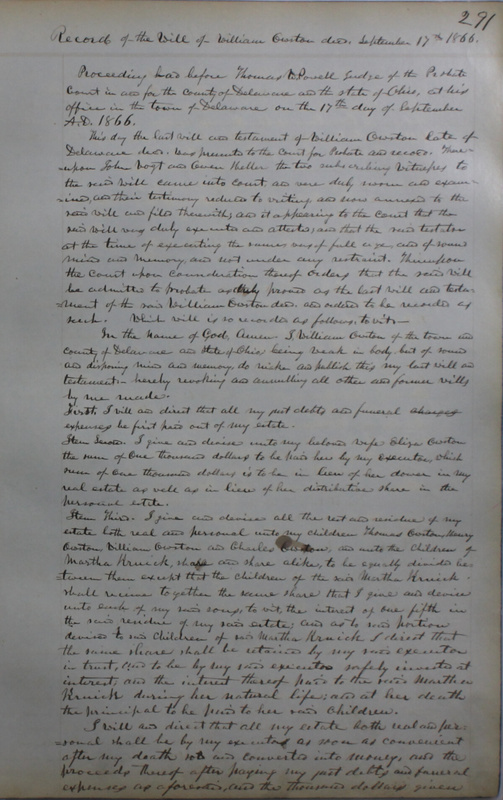 291
Record of the Will of William Owston decd. September 17th 1866.
Proceeding had before Thomas W Powell Judge of the Probate
Court in and for the County of Delaware and the state of Ohio, at his
office in the town of Delaware on the 17th day of September
A.D. 1866.
This day the last will and testament of William Owston late of
Delaware decd. was presented to the Court for Probate and record. There-
-upon John Vogt and Owen Heller the two subscribing Witnesses to
the said Will came into court and were duly sworn and exam-
-ined, and their testimony reduced to writing and was annexed to the
said will and filed therewith; and it appearing to the Court that the
said will was duly executed and attested; and that the said testator
at the time of executing the same was of full age, and of sound
mind and memory, and not under any restraint. Thereupon
the Court upon consideration thereof orders that the said Will
be admitted to probate as duly proved as the last will and testa-
-ment of the said William Owston decd. and ordered to be recorded as
such. Which will is so recorded as follows, to wit:-
In the name of God, Amen. I, William Owston of the town and
County of Delaware and State of Ohio being weak in body, but of sound
and disposing mind and memory, do make and publish this my last will and
testament:- hereby revoking and annulling all other and former wills
by me made.
First: I will and direct that all my just debts and funeral charges
expenses be first paid out of my estate.
Item Second. I give and devise unto my beloved wife Eliza Owston
the sum of One thousand dollars to be paid her by my executor, which
sum of one thousand dollars is to be in lieu of her dower in my
real estate as well as in lieu of her distributive share in the
personal estate.
Item Third. I give and devise all the rest and residue of my
estate both real and personal unto my children Thomas Owston, Henry
Owston, William Owston and Charles Owston, and unto the children of
Martha Kruick, share and share alike, to be equally divided be-
tween them except that the children of the said Martha Kruick
shall receive together the same share that I give and devise
unto each of my said sons, to wit, the interest of one fifth in
the said residue of my said estate; and as to said portion
devised to said Children of said Martha Kruick I direct that
the same share shall be retained by my said executor
in trust, and to be by my said executor safely invested at
interest, and the interest thereof paid to the said Martha
Kruick during her natural life; and at her death
the principal to be paid to her said Children.
I will and direct that all my estate both real and per-
-sonal shall be by my executor as soon as convenient
after my death sold and converted into money, and the
proceeds thereof after paying my just debts and funeral
expenses as aforesaid, and the thousand dollars given